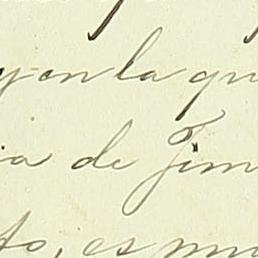 y en la qu
ia de fim
to, es mu